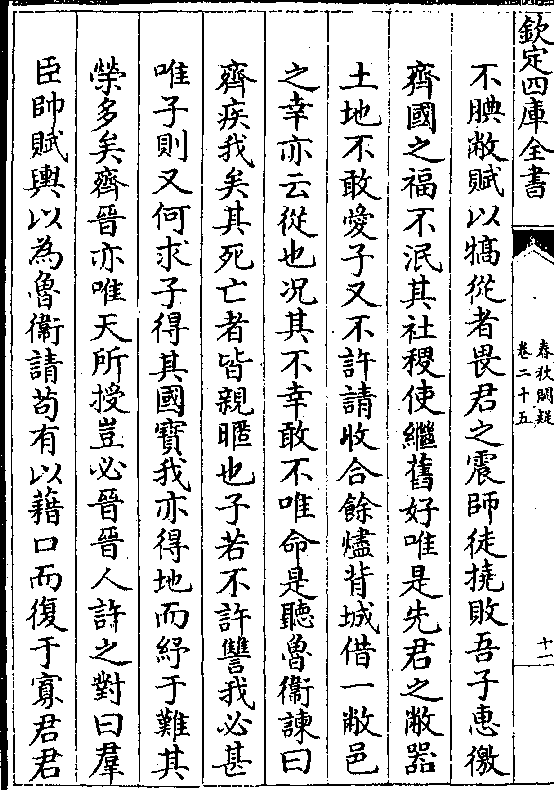 欽定四庫全書
春秋闕疑
卷二十五
十一
不腆敝賦以犒從者畏君之震師徒撓敗吾子惠徼
齊國之福不泯其社稷使繼舊好唯是先君之敝器
土地不敢愛子又不許請收合餘燼背城借一敝邑
之幸亦云從也况其不幸敢不唯命是聽魯衞諫曰
齊疾我矣其死亡者皆親暱也子若不許讐我必甚
唯子則又何求子得其國寳我亦得地而紓于難其
榮多矣齊晉亦唯天所授豈必晉晉人許之對曰羣
臣帥賦輿以為魯衞請苟有以藉口而復于寡君君